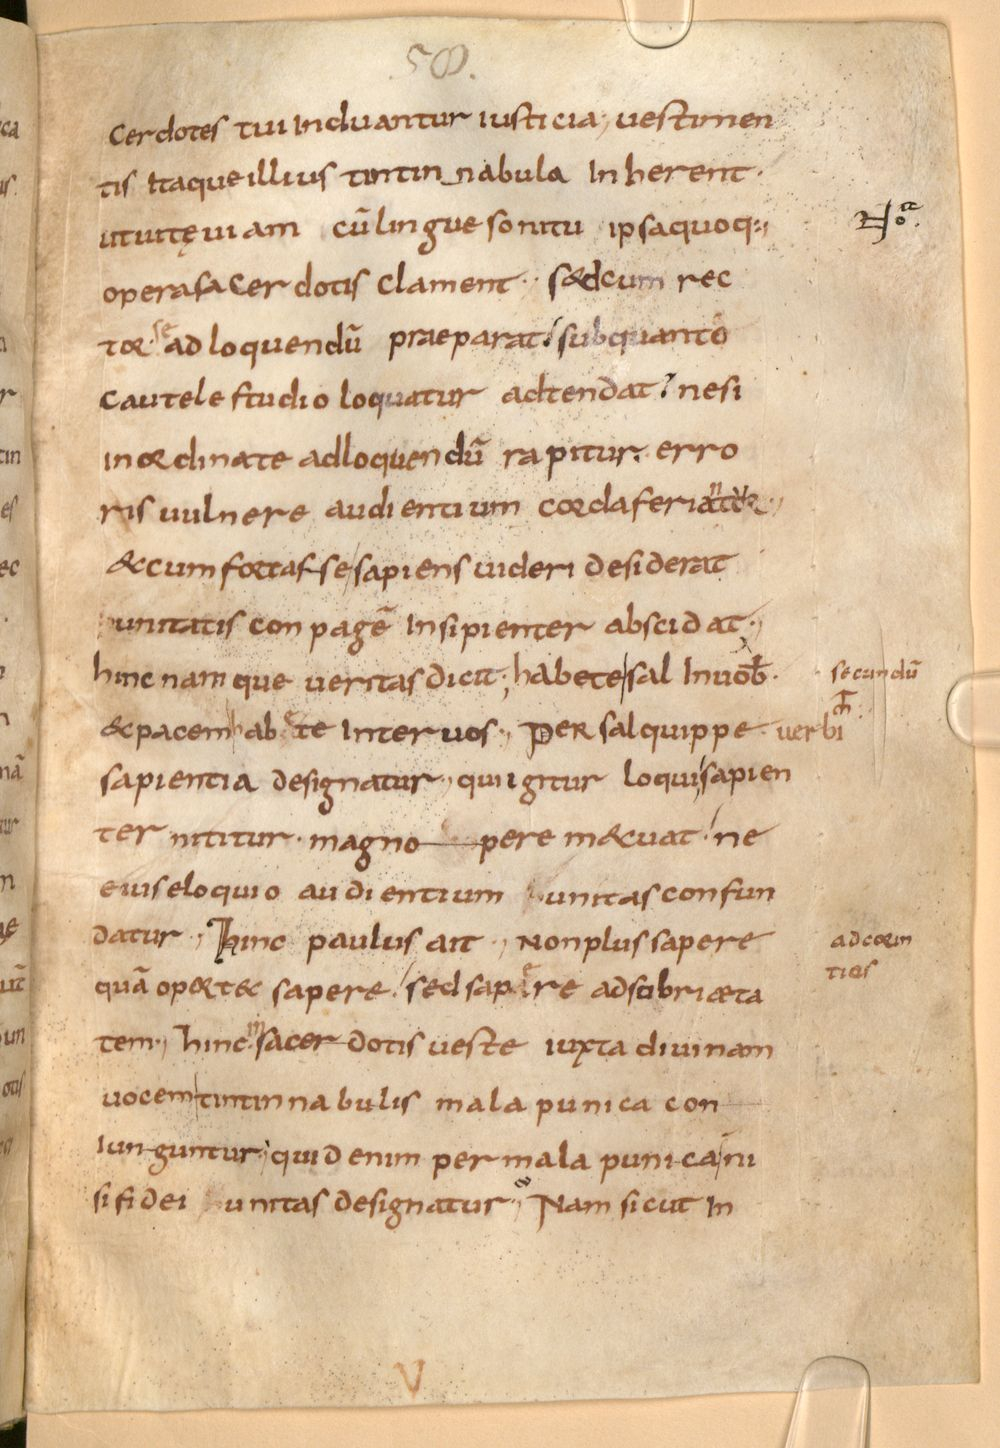 50.
cerdotes tui induantur iusticia, uestimen
tis Itaque illius tintin nabula Inherent.
ututę uiam cū lingue sonitu ipsa quoq;
opera sacerdotis clament. sed cum rec
tor se ad loquendū praeparat, sub quanto
cautele studio loquatur adtendat, ne si
inordinate ad loquendū rapitur erro
ris uulnere audientium corda feriantur.
& cum fortasse sapiens uideri desiderat
unitatis conpagē Insipienter abscidat.
hinc namque ueritas dicit, habete sal In uob̄.
& pacem habete Inter uos. Per sal quippe uerbi
sapientia designatur, qui igitur loqui sapien
ter nititur. magno pere m&uat ne
eius eloquio audientium unitas confun
datur, hinc paulus ait, Non plus sapere
quā oport& sapere, sed sapere ad sobriæta
tem, hinc in sacerdotis ueste iuxta diuinam
uocem tintinnabulis mala punica con
iunguntur, quid enim per mala punica ni
si fidei unitas designatur, Nam sicut In
secundū
ad corin
tios
V